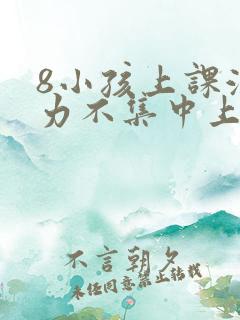 8小孩上課
力不集中上
不言朝夕
未经同意禁止转载